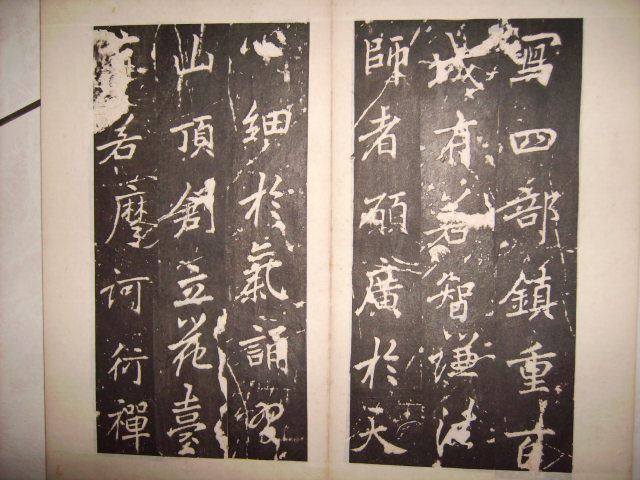 寫四部鎮重百
城有若智謙法
師者願廣於天
心細於氣誦習
山頂創立花臺
有若摩訶衍禪